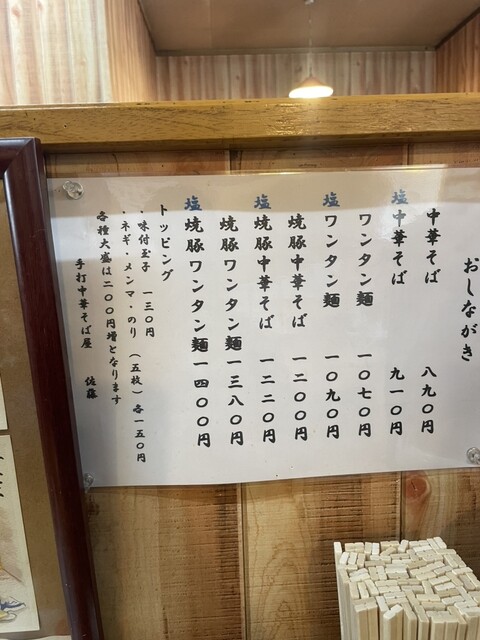 おしながき
中華そば 八九〇円
塩中華そば 九一〇円
ワンタン麺 一〇七〇円
塩ワンタン麺 一〇九〇円
焼豚中華そば 一二〇〇円
塩焼豚中華そば 一二二〇円
焼豚ワンタン麺 一三八〇円
塩焼豚ワンタン麺 一四〇〇円
トッピング
・味付玉子 一三〇円
・ネギ・メンマ・のり(五枚)各一五〇円
各種大盛は二〇〇円増となります
手打中華そば屋 佐藤